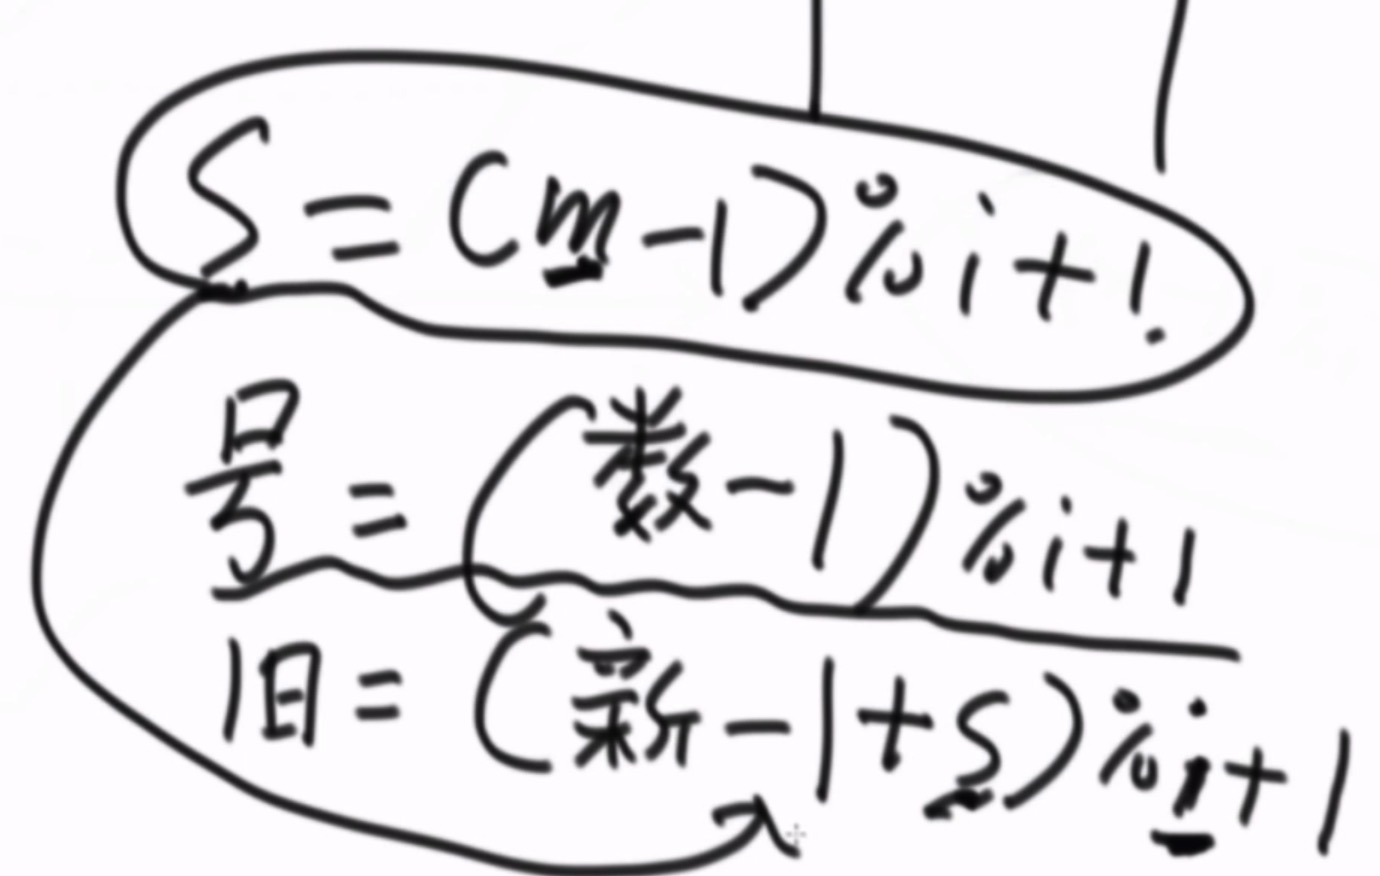 S=(m-1)%i+1.
号=(数-1)%i+1
旧=(新-1+S)%i+1